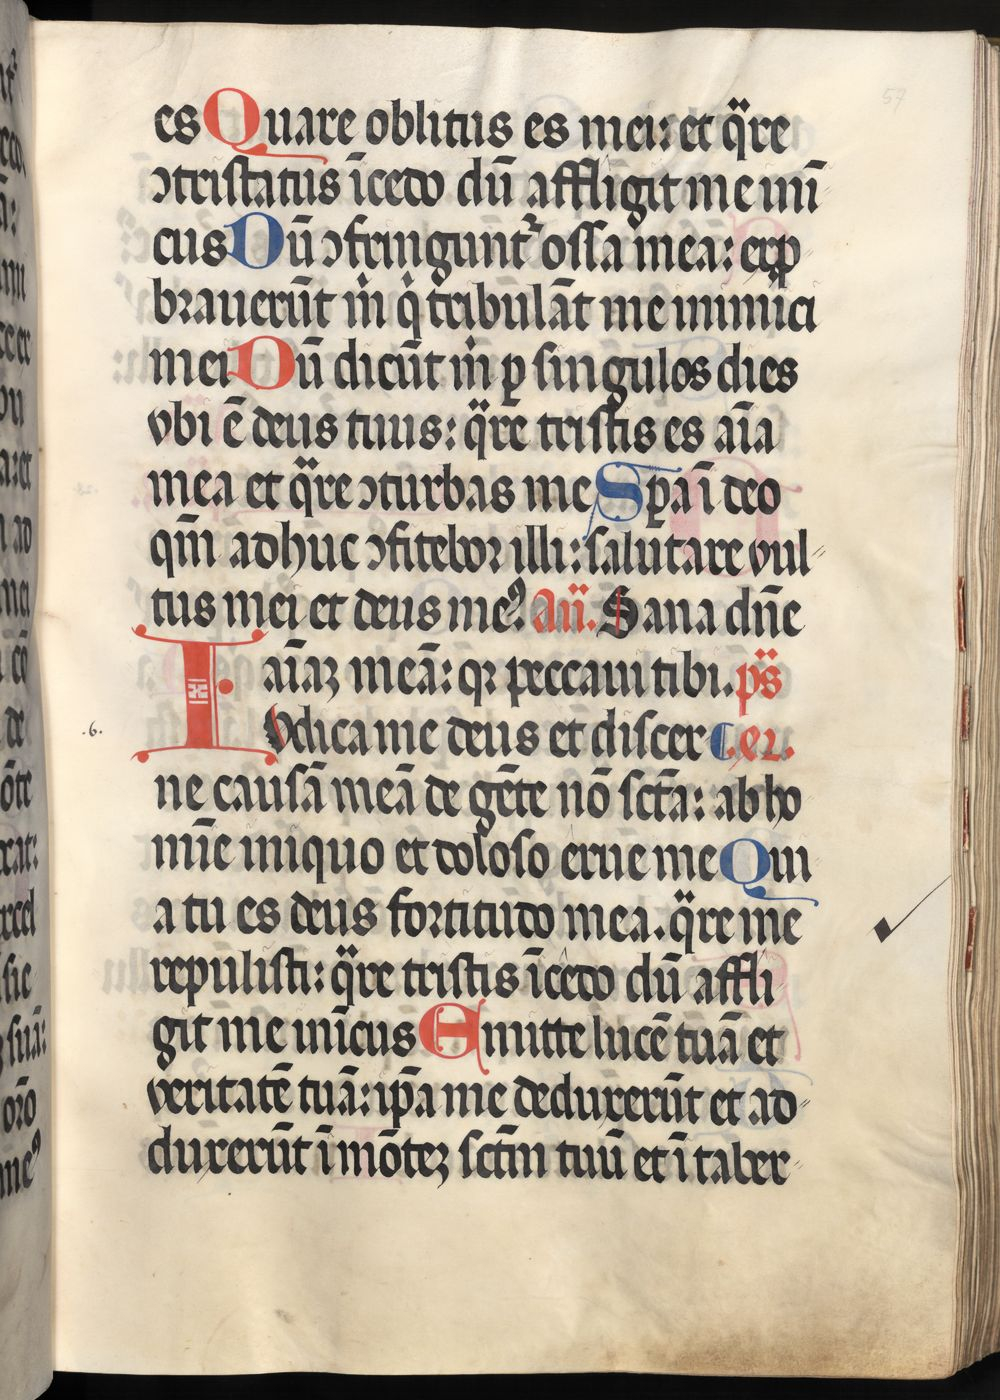 57
es Quare oblitus es mei: et q̈re
ↄtristatus īcedo dū affligit me imī
cus Dū ↄfringunt᷑ ossa mea: exp
brauerūt m̊ q̇ tribulāt me inimici
mei Dū dicūt m̊ ꝑ singulos dies
vbi ē deus tuus: q̈re tristis es aīa
mea et q̈re ↄturbas me Spa ī deo
qm̄ adhuc ↄfitebor illi: salutare vul-
tus mei et deus meꝰ. añ. Sana dn̄e
aīaz meā: qꝛ peccaui tibi. ps̄
.6. Iudica me deus et discer C. er.
ne causā meā de gēte nō sctā: ab ho
mīe iniquo et doloso erue me Qui
a tu es deus fortitudo mea. q̈re me
repulisti: q̈re tristis īcedo dū affli
git me inīcus Emitte lucē tuā et
veritatē tuā: ip̄a me deduxerūt et ad-
duxerūt ī mōtez sctm̄ tuū et ī taber-